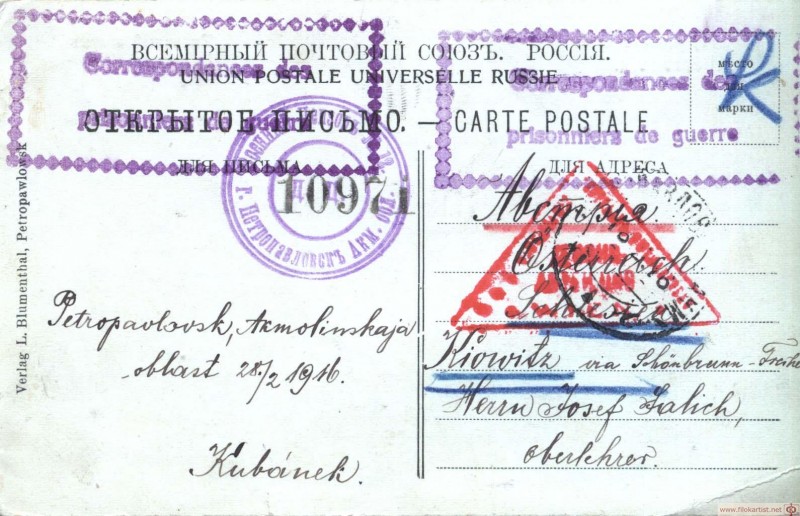 ВСЕМІРНЫЙ ПОЧТОВЫЙ СОЮЗЪ. РОССІЯ.
UNION POSTALE UNIVERSELLE RUSSIE
ОТКРЫТОЕ ПИСЬМО. — CARTE POSTALE
Correspondances des
prisonniers de guerre
Correspondances des
prisonniers de guerre
мѣсто
для
марки
ДЛЯ ПИСЬМА
ДЛЯ АДРЕСА
г. Петропавловскъ Акм. обл.
10971
Австрія
Österreich.
Kiowitz via Schönbrunn-
Herrn Josef Salich,
oberlehrer.
Petropavlovsk, Akmolinskaja
oblast 28/2 1916.
Kubánek.
Verlag L. Blumenthal, Petropawlowsk
www.filokartist.net